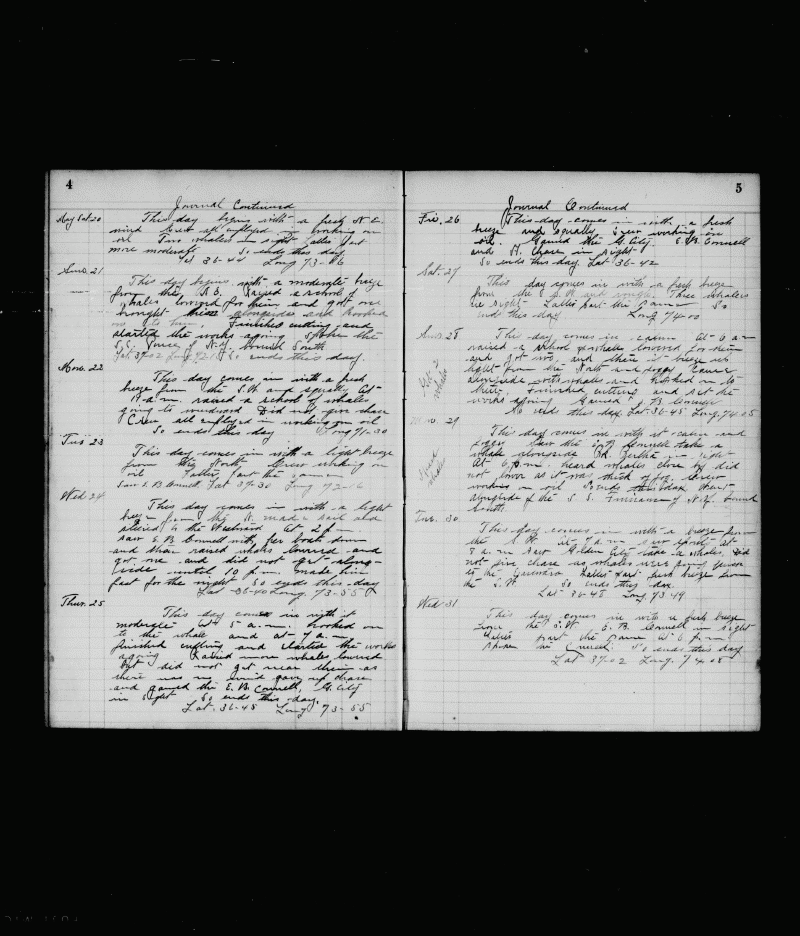 4
Journal Continued
May Sat. 20 This day begins with a fresh N.E.
wind Crew all employed in working on
oil Two whalers in sight Latter part
more moderate So ends this day
Lat 36-44 Long 73-16
Sun. 21
This day begins with a moderate breeze
from the N.E. Raised a school of
whales lowered for them and got one
brought alongside and hooked
on to him. Finished cutting and
started the works agoing Spoke the
S.S. of N.Y. bound South
Lat. 37-02 Long So ends this day.
Mon. 22
This day comes in with a fresh
breeze from the S.W. and squally At
A.m. raised a school of whales
going to windward Did not give chase
Crew all employed in working on oil
So ends this day Long 71-30
Tue 23
This day comes in with a light breeze
from the North Crew working on
oil Latter part the same
Saw E. B. Conwell, Lat 37-30 Long 72-16
Wed. 24
This day comes in with a light
breeze from the N. made sail and
steered to the Westward At 2 p.m.
saw E. B. Conwell with her boats down
and then raised whales lowered and
got one and did not get along-
side until 10 p.m. made him
fast for the night So ends this day
Lat 36-40 Long. 73-55
Thur. 25
This day comes in with it
moderate At 5 a.m. hooked on
to the whale and at 7 a.m.
finished cutting and started the works
agoing Raised more whales lowered
but did not get near them as
there was no wind gave up chase
and gamed the E. B. Conwell, G. City
in sight So ends this day.
Lat. 36-48 Long 73-55
5
Journal Continued
Fri. 26 This day comes in with a fresh
breeze and squally, Crew working on
oil. Gamed the G. City. E. B. Conwell
and A. Chase in sight
So ends this day Lat 36-42
Sat. 27
This day comes in with a fresh breeze
from the S.W. and rough. Three whalers
in sight Latter part the same So
ends this day Long 74-00
Sun. 28 This day comes in calm At 6 a.m.
raised a school of whales lowered for them
and got two, and then it breeze up
light from the North and foggy Came
alongside with whales and hooked on to
them, finished cutting and set the
works agoing Gamed E. B. Conwell
So ends this day. Lat. 36-48 Long. 74-05
Got 2
whales
Mon. 29
This day comes in with it calm and
foggy Saw the E. B. Conwell take a
whale alongside in sight
At 6 p.m. heard whales close by did
not lower as it was thick of fog. Crew
working on oil So ends this day Went
alongside of the S.S. of N.Y. bound
South
Heard
whales
Tue. 30
This day comes in with a breeze from
the S.W. At 7 a.m. saw spout At
8 a.m. saw Golden City take a whale. Did
not give chase as whales were going
to the Latter part fresh breeze from
the S.W. So ends this day
Lat. 36-48 Long. 73-49
Wed 31
This day comes in with a fresh breeze
from the S.W. E. B. Conwell in sight
Latter part the same At 6 p.m.
spoke the Conwell. So ends this day
Lat 37-02 Long. 74-08